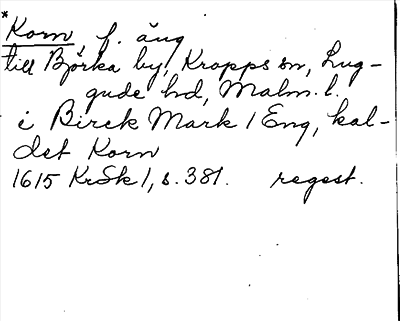 *Korn, f. äng
till Björka by, Kropps sn, Lug-
gude hd, Malm. l.
i Birck Mark 1 Eng, kal-
det Korn
1615 KrSk 1, s. 381. regest.